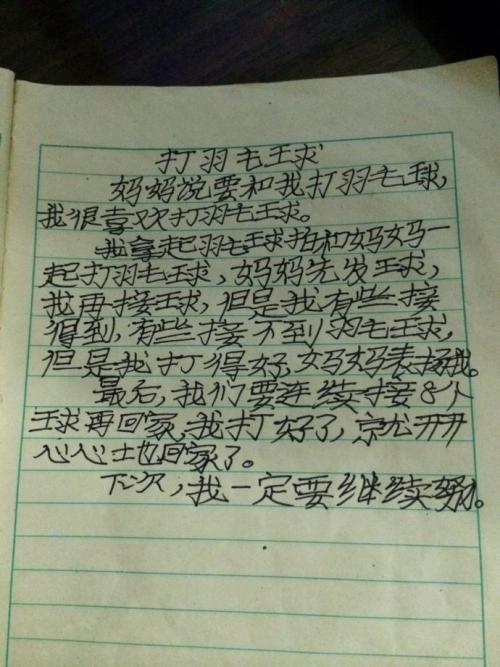 打羽毛球
妈妈说要和我打羽毛球,
我很喜欢打羽毛球。
我拿起羽毛球拍和妈妈一
起打羽毛球,妈妈先发球,
我再接球,但是我有些接
得到,有些接不到羽毛球,
但是我打得好,妈妈表扬我。
最后,我们要连续接8个
球再回家,我打好了,就开开
心心地回家了。
下次,我一定要继续努。